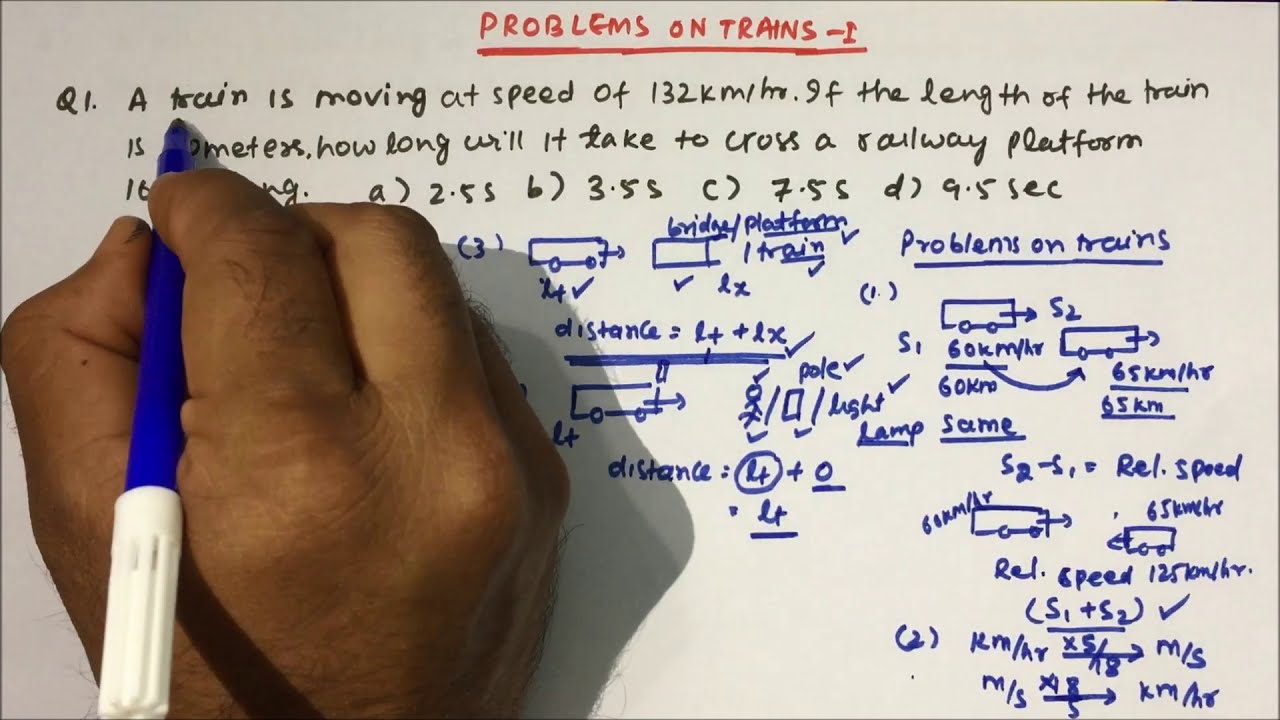 PROBLEMS ON TRAINS-I
Q1. A train is moving at speed of 132km/hr. If the length of the train
is ometers, how long will it take to cross a railway platform
a) 2.5s b) 3.5s c) 7.5s d) 9.5sec
(3) bridge/platform
1 train
lt lx
distance = lt + lx
pole
/ light
Lamp
lt
distance = lt + 0
= lt
Problems on trains
(1.)
S2
S1 60km/hr
60km
65km/hr
65km
same
S2-S1 = Rel. speed
60km/hr 65km/hr
Rel. speed 125km/hr.
(S1+S2)
(2) km/hr ×5/18 m/s
m/s ×18/5 km/hr